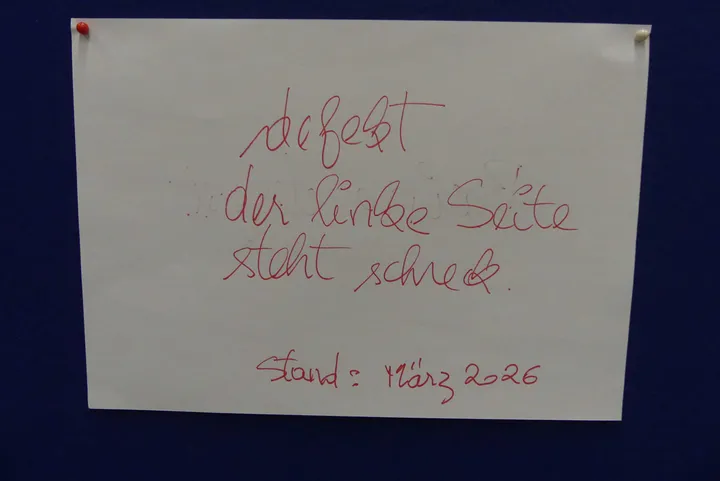 defekt
der linke Seite
steht schreck.
Stand: März 2026